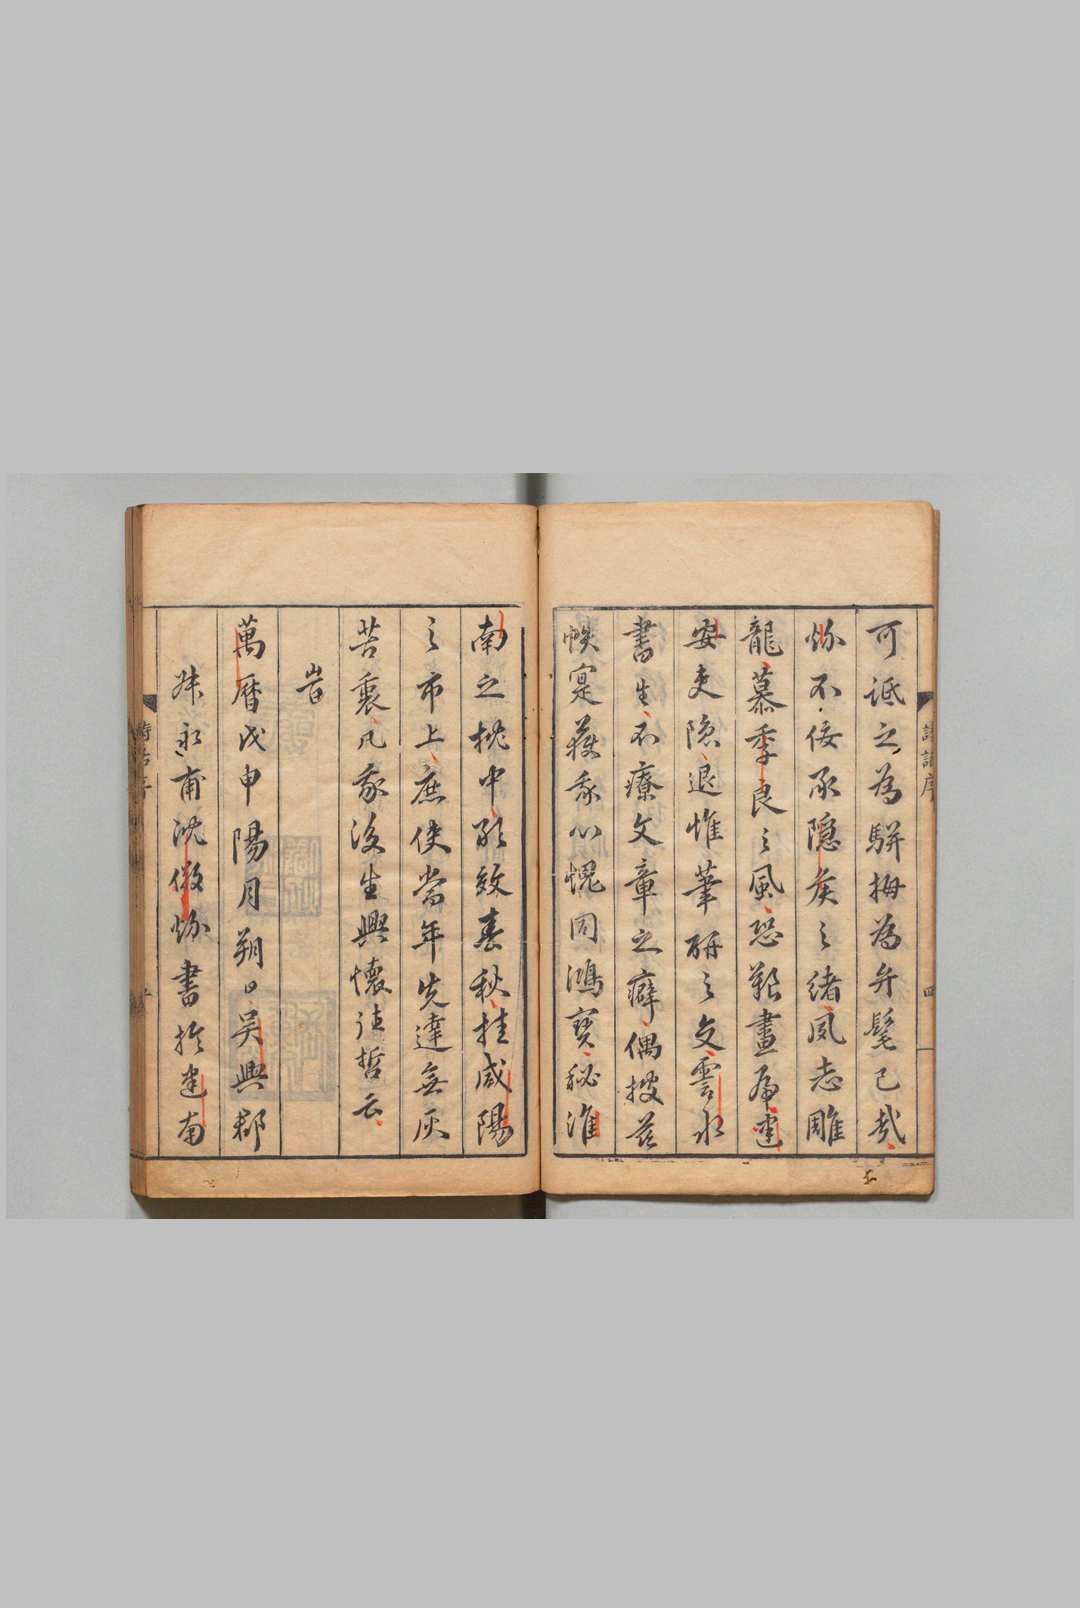 詩話序 四
可詆之為駢拇為弁髦已哉
炌不佞承隱侯之緒夙志雕
龍慕季良之風恐艱畫虎建
安吏隱退惟筆研之交雲水
書生不療文章之癖偶披茲
帙寔獲我心愧同鴻寶秘淮
南之枕中敢效春秋挂咸陽
之市上庶使當年先達無灰
苦衷凡我後生興懷往哲云
旹
萬曆戊申陽月朔日吳興郡
叔永甫沈儆炌書於建南
詩話序